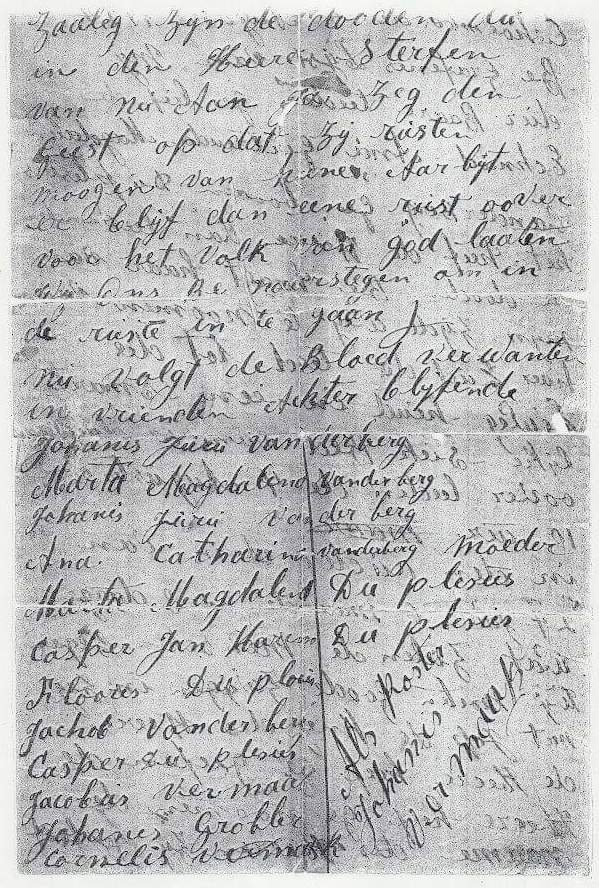 Zaaleg Zyn de dooden die
in den Heere sterfen
van nu Aan Zeg den
Geest op dat Zy rusten
moogen van Haren Aarbijt
er blyf dan eene rust oover
voor het Volk van god laaten
Wy Ons Be naarstegen om in
de ruste in te gaan
nu volgt de Bloed verwanten
in vrienden Achter blyfende
Johanis Jurii van der berg
Marta Magdalena vanderberg
Johanis Jurii van der berg
Ana. Catharina vanderberg moeder
Magdalena Du plesius
Casper Jan Harm Du plesius
Floores Du plouis
Jachob vanderberg
Casper Du plesius
Jacobus vermaak
Johanes Grobler
Cornelis vermaak
Als
Johanis
vermaak